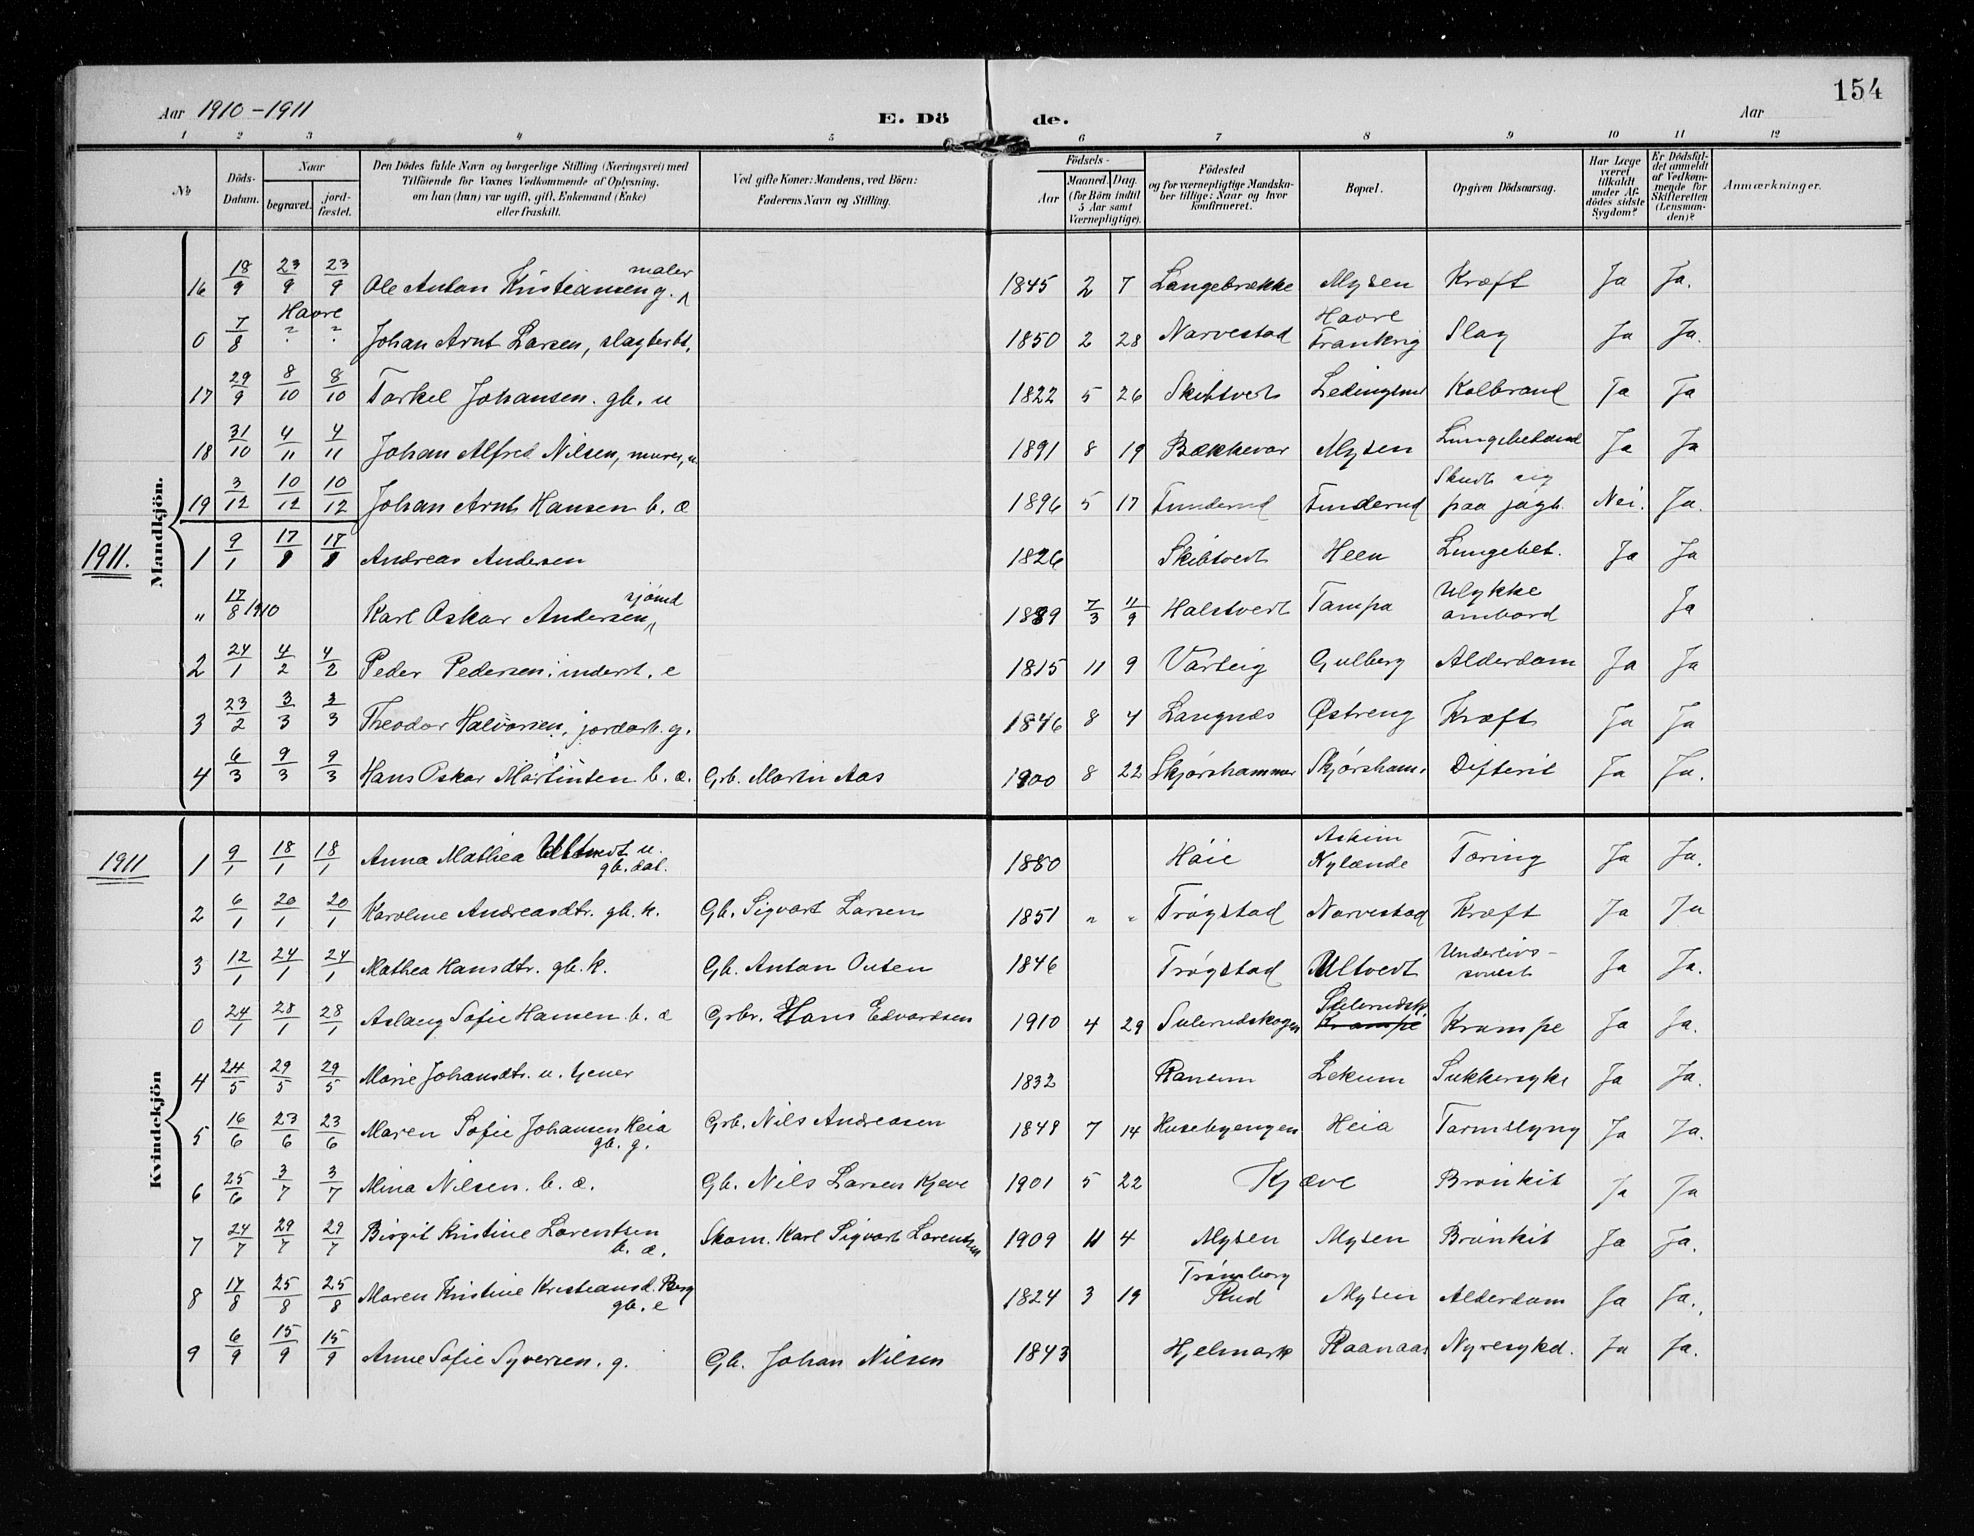 154
Aar 1910-1911 E. Dö de. Aar
1 2 3 4 5 6 7 8 9 10 11 12
No
Döds-Datum.
Naar
begravet.
jord-fæstet.
Den Dödes fulde Navn og borgerlige Stilling (Næringsvei) med
Tilföiende for Voxnes Vedkommende af Oplysning,
om han (hun) var ugift, gift, Enkemand (Enke)
eller fraskilt.
Ved gifte Koner: Mandens, ved Börn:
Faderens Navn og Stilling.
Födsels-
Aar
Maaned. Dag.
(for Börn indtil
5 Aar samt
Værnepligtige).
Födested
og for værnepligtige Mandska-
ber tillige: Naar og hvor
konfirmeret.
Bopæl.
Opgiven Dödsaarsag.
Har Læge
været
tilkaldt
under Af-
dödes sidste
Sygdom?
Er Dödsfal-
det anmeldt
af Vedkom-
mende for
Skifteretten
(Lensman-
den)?
Anmærkninger.
Mandkjön.
16 18/9 23/9 23/9 Ole Anton Kristiansen g. maler 1845 2 7 Langebrække Mysen Kræft Ja Ja.
0 7/8 Havre " " Johan Arnt Larsen, slagterbt. 1850 2 28 Narvestad Havre Frankrig Slag Ja Ja.
17 29/9 8/10 8/10 Torkel Johansen. gb. u 1822 5 26 Skibtvedt Kolbrand Ja Ja
18 31/10 4/11 4/11 Johan Alfred Nilsen, murer, u. 1891 8 19 Bækkevar Mysen Ja Ja
19 3/12 10/12 10/12 Johan Arnt Hansen b. æ 1896 5 17 Funderud Funderud Skudt sig paa jagt. Nei. Ja.
1911.
1 9/1 17/1 17/1 Andreas Andersen 1826 Skibtvedt Heen Lungebet. Ja Ja
" 17/8 1910 Karl Oskar Andersen, sjömd 1889 7/3 11/9 Halstvedt Tampa Ulykke ombord Ja
2 24/1 4/2 4/2 Peder Pedersen, inderst, e 1815 11 9 Varteig Gulberg Alderdom Ja Ja
3 23/2 3/3 3/3 Theodor Halvorsen, jordarb. g. 1846 8 4 Langnæs Østreng Kræft Ja Ja
4 6/3 9/3 9/3 Hans Oskar Martinsen b. æ. Grb. Martin Aas 1900 8 22 Skjørshammer Skjørsham. Difterit Ja Ja.
1911
Kvindekjön
1 9/1 18/1 18/1 Anna Mathea Ultvedt u. gb. dat. 1880 Høie Askim Nylænde Tæring Ja Ja.
2 6/1 20/1 20/1 Karoline Andreasdtr. gb. k. Gb. Sigvart Larsen 1851 " " Trøgstad Narvestad Kræft Ja Ja
3 12/1 24/1 24/1 Mathea Hansdtr. gb. k. Gb. Anton Olsen 1846 Trøgstad Ultvedt Underlivs-svulst Ja Ja.
0 24/1 28/1 28/1 Aslaug Sofie Hansen b. æ Grbr. Hans Edvardsen 1910 4 29 Sulerudskogen Sulerudsk. Krampe Krampe Ja Ja.
4 24/5 29/5 29/5 Marie Johansdtr. u. tjener 1832 Ranum Lekum Sukkersyke Ja Ja.
5 16/6 23/6 23/6 Maren Sofie Johansen Heia gb. g. Grb. Nils Andreasen 1848 7 14 Husebyengen Heia Tarmslyng Ja Ja.
6 25/6 3/7 3/7 Mina Nilsen. b. æ. Gb. Nils Larsen Kjeve 1901 5 22 Kjæve Bronkit Ja Ja
7 24/7 29/7 29/7 Birgit Kristine Lorentsen b. æ. Skom. Karl Sigvart Lorentsen 1909 11 4 Mysen Mysen Bronkit Ja Ja.
8 17/8 25/8 25/8 Maren Kristine Kristiansd. Berg gb. e 1824 3 19 Trømborg Rud Mysen Alderdom Ja Ja.
9 6/9 15/9 15/9 Anne Sofie Syversen. g. Gb. Johan Nilsen 1843 Hjelmark Raanaas Nyresykd. Ja Ja.